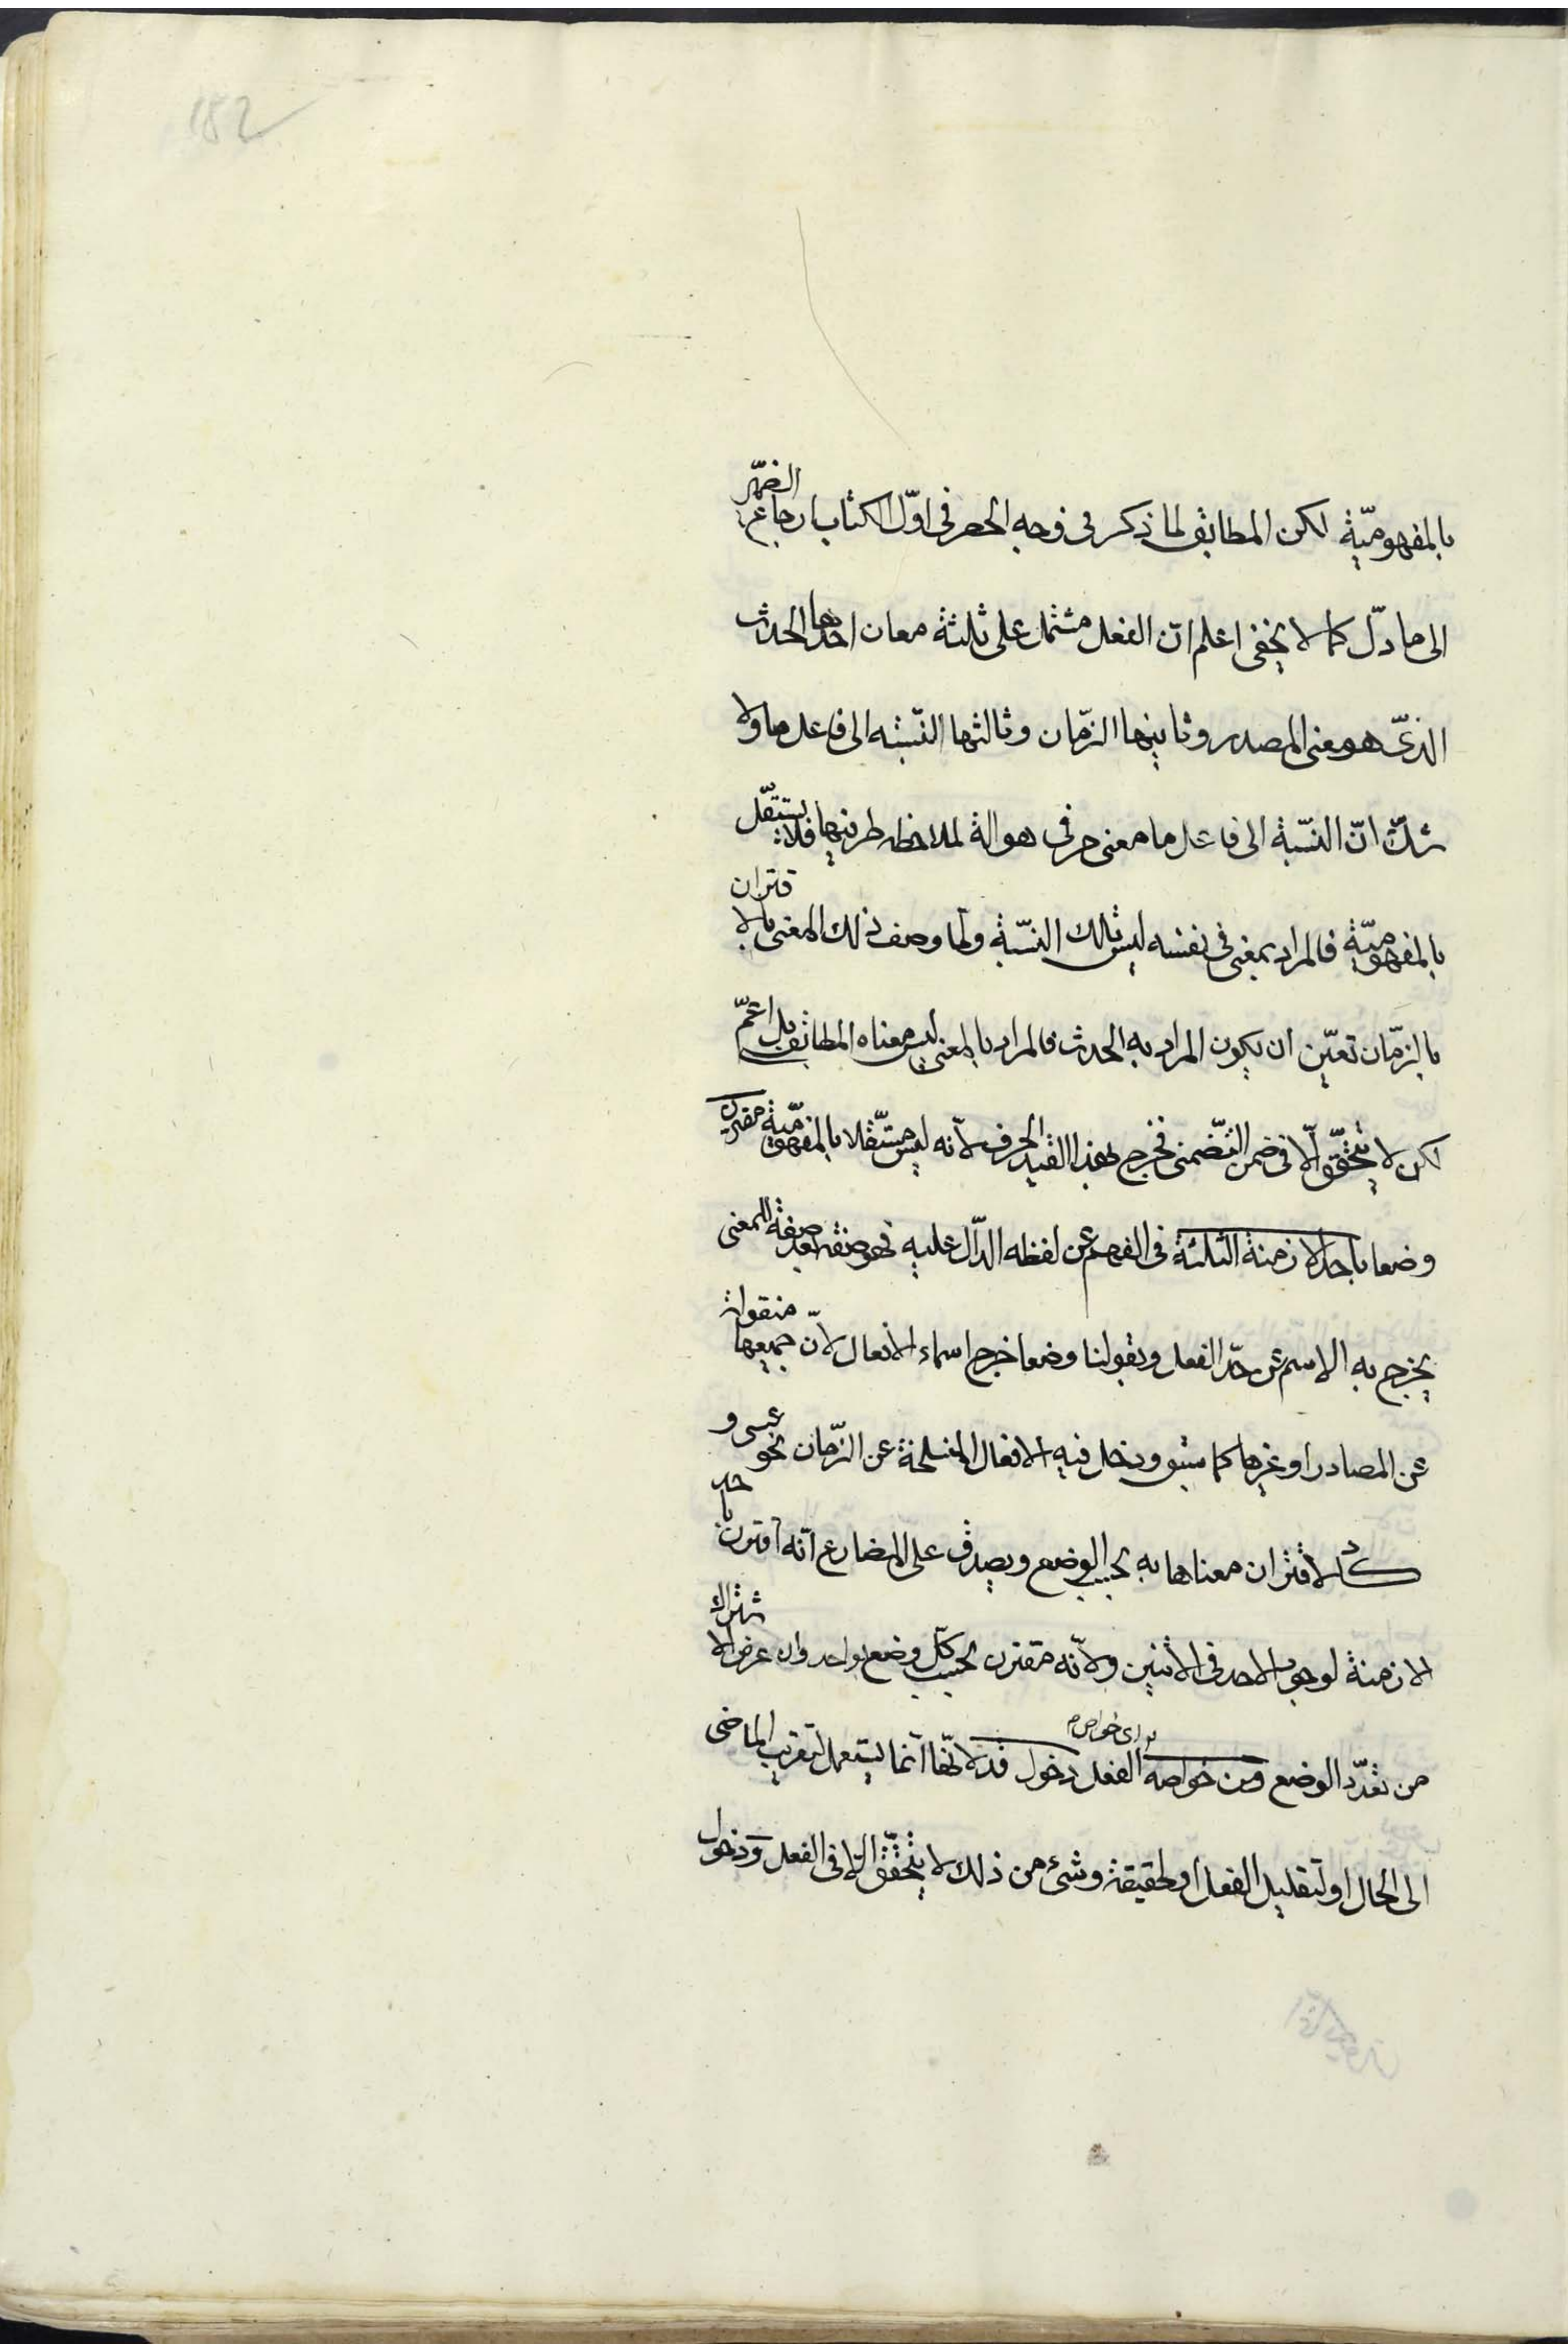 182
بالمفهوميّة لكن المطابق لما ذكر فى وجه الحصر فى اوّل الكتاب ارجاع الضمّير
الى ما دلّ كما لا يخفى اعلم انّ الفعل مشتمل على ثلثة معان احدها الحدث
الذىّ هو معنى المصدر وثانيها الزّمان وثالثها النّسبه الى فاعل ما ولا
شكّ انّ النسّبة الى فاعل ما معنى حرفى هو الة لملاحظه طرفيها فلا يستقّل
بالمفهوميّة فالمراد بمعنى فى نفسه ليس تلك النسّبة ولمّا وصف ذلك المعنى بالاقتران
بالزّمان تعيّن ان يكون المراد به الحدث فالمراد بالمعنى ليس معناه المطابقى بل اعمّ
لكن لا يتحقّق الّا فى ضمن التضّمنى فخرج بهذا القيد الحرف لانّه ليس مستّقلا بالمفهوميّة مقترن
وضعا باحد الازمنة الثلثة فى الفهم عن لفظه الدّال عليه فهو صفة بعد صفة للمعنى
يخرج به الاسم عن حدّ الفعل وبقولنا وضعا خرج اسماء الافعال لانّ جميعها منقولة
عن المصادر او غيرها كما سبق ودخل فيه الافعال المنسلخة عن الزّمان نحو عسى و
كاد لاقتران معناها به بحسب الوضع ويصدق على المضارع انّه اقترن باحد
الازمنة لوجود الاحد فى الاثنين ولانّه مقترن بحسب كلّ وضع بواحد وان عرض الاشتراك
من تعدّد الوضع ومن خواصه اى خواص الفعل دخول قد لانّها انّما يستعمل لتقريب الماضى
الى الحال او لتقليل الفعل او لحقيقة وشىء من ذلك لا يتحقّق الّا فى الفعل ودخول